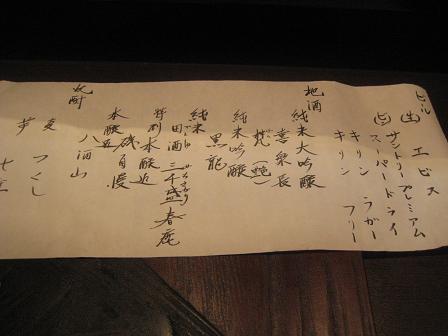 ビール
㊤ エビス
サントリープレミアム
スーパードライ
キリン ラガー
キリン フリー
地酒
純米大吟醸
喜楽長
梵
純米吟醸
黒龍
純米
田酒 三千盛 春鹿
特別本醸造
磯自慢
本醸造
八海山
焼酎
麦 つくし
芋 七